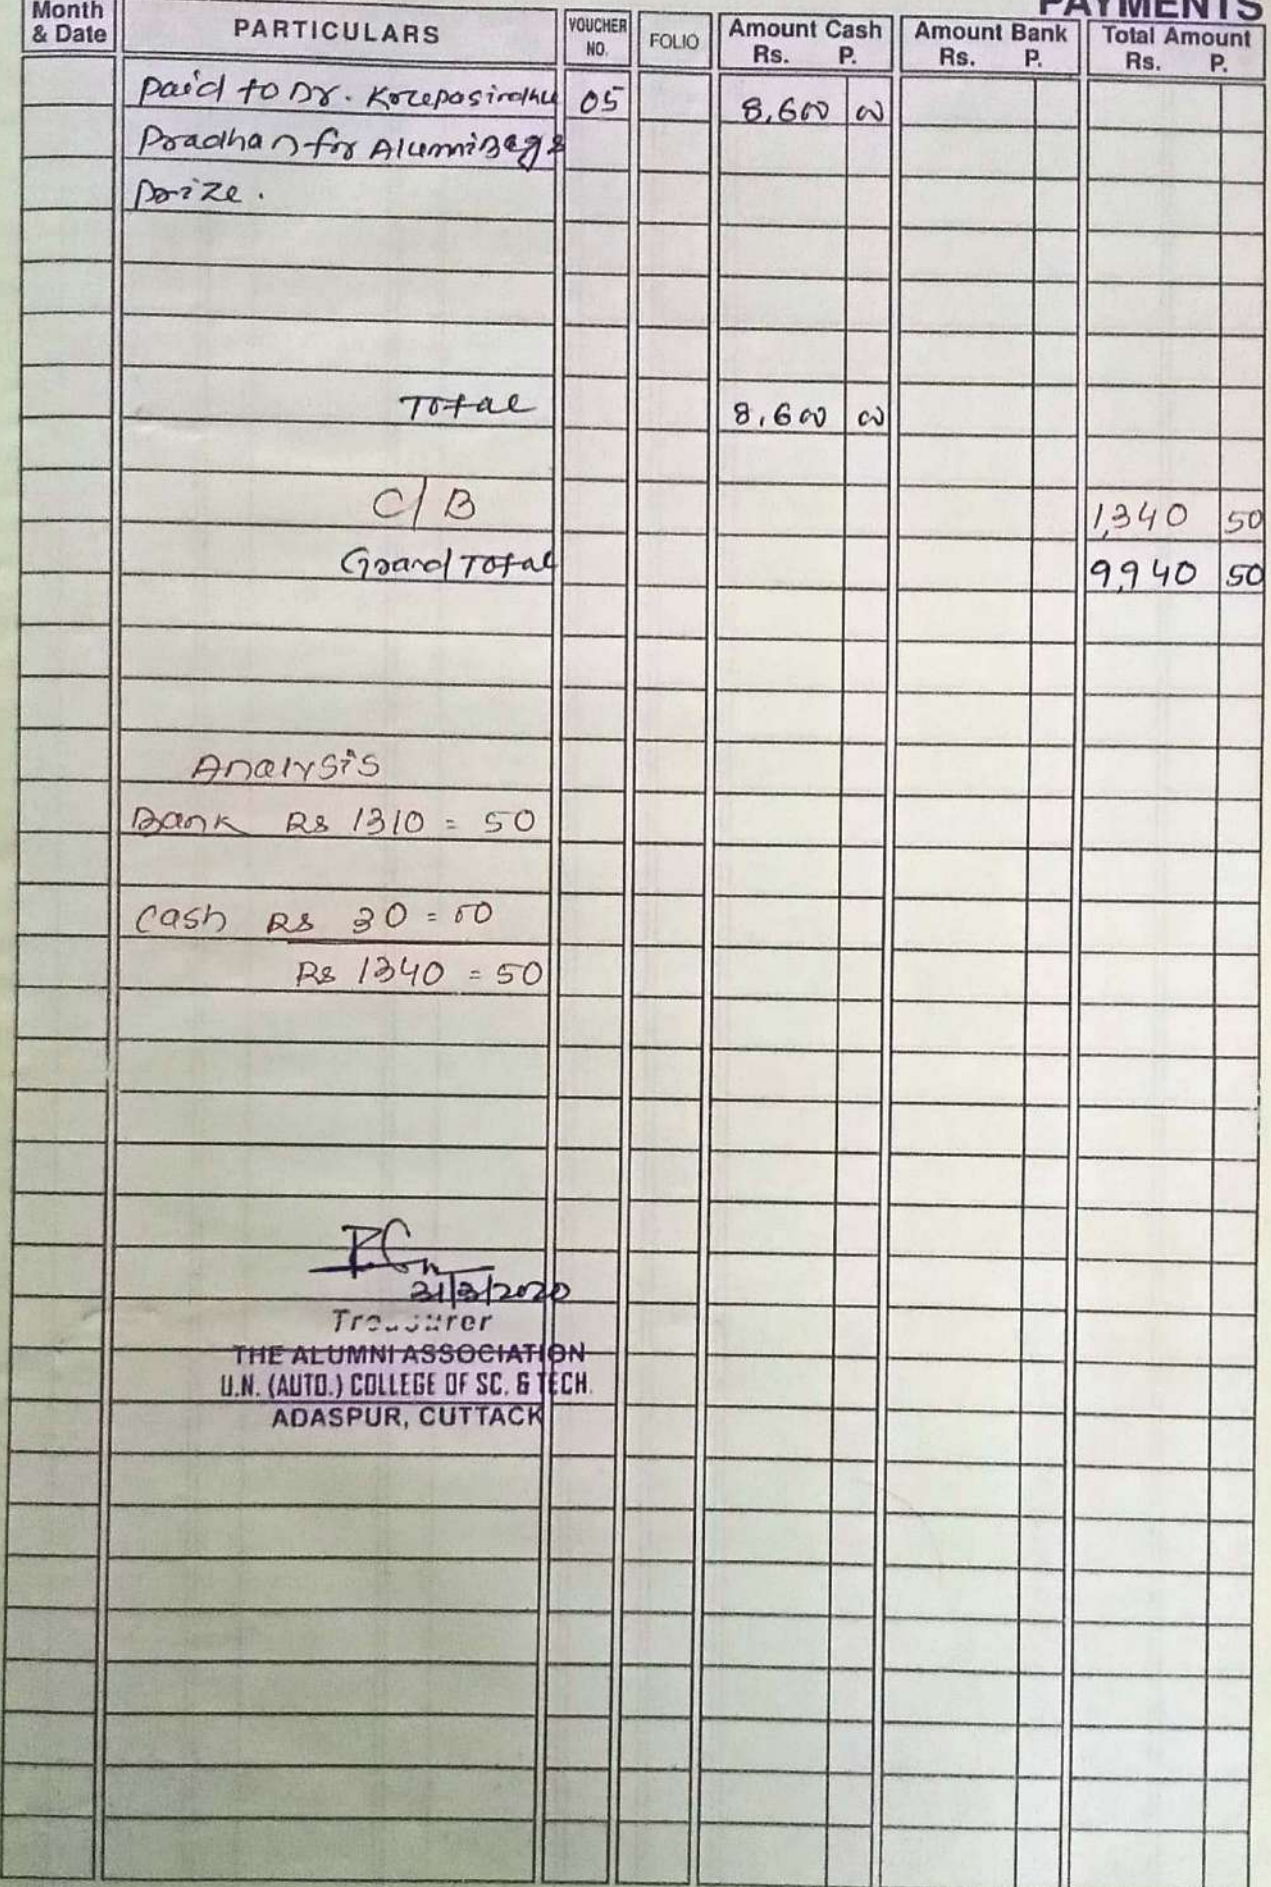 PAYMENTS
Month & Date PARTICULARS VOUCHER NO. FOLIO Amount Cash Rs. P. Amount Bank Rs. P. Total Amount Rs. P.
Paid to Dr. Krupasindhu 05 8,600 00
Pradhan for Alumni Bag &
Prize.
Total 8,600 00
C/B 1,340 50
Grand Total 9,940 50
Analysis
Bank Rs 1310 = 50
Cash Rs 30 = 00
Rs 1340 = 50
31/3/2020
Treasurer
THE ALUMNI ASSOCIATION
U.N. (AUTO.) COLLEGE OF SC. & TECH.
ADASPUR, CUTTACK